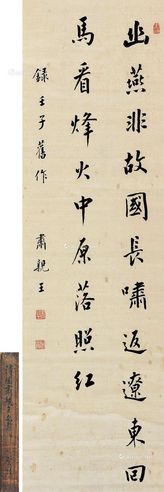 幽燕非故國長嘯返遼東回
馬看烽火中原落照紅
錄壬子舊作
肅親王